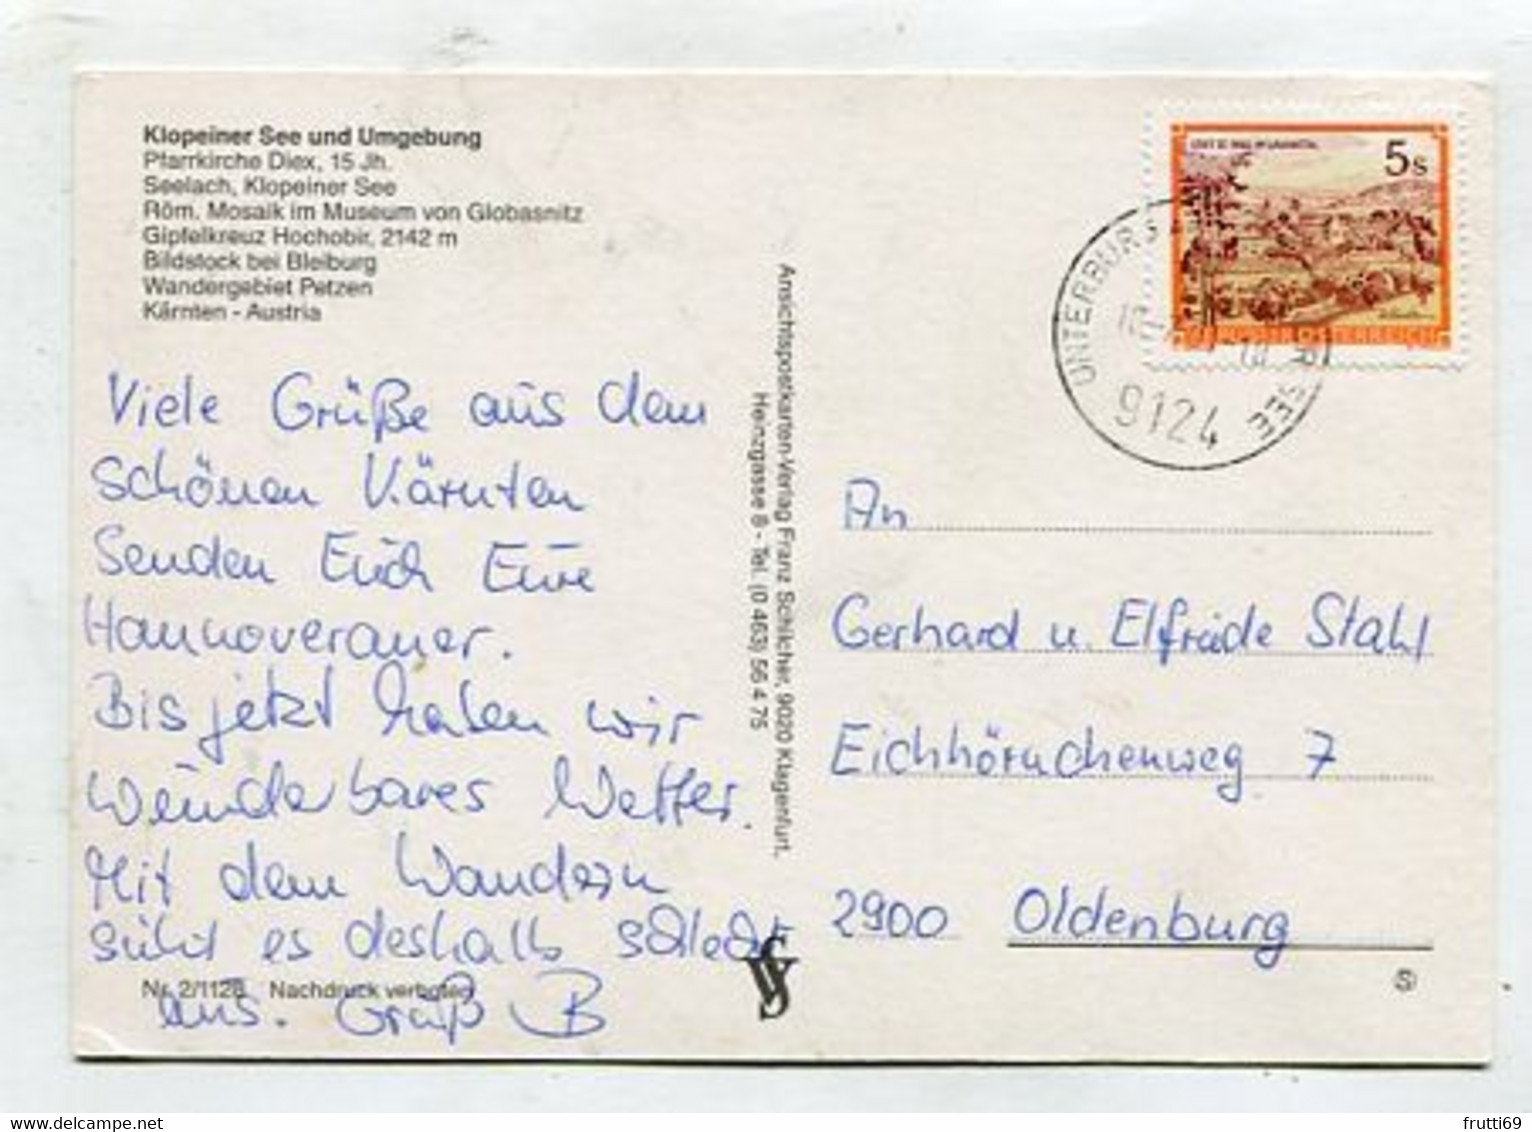 Klopeiner See und Umgebung
Pfarrkirche Diex, 15 Jh.
Seelach, Klopeiner See
Röm. Mosaik im Museum von Globasnitz
Gipfelkreuz Hochobir, 2142 m
Bildstock bei Bleiburg
Wandergebiet Petzen
Kärnten - Austria
Viele Grüße aus dem
schönen Kärnten
Senden Euch Eure
Hannoveraner.
Bis jetzt haben wir
Wunderbares Wetter.
Mit dem Wandern
sieht es deshalb schlecht
aus. Gruß B
Nr. 2/1128 Nachdruck verboten
Ansichtspostkarten-Verlag Franz Schilcher, 9020 Klagenfurt,
Heinzgasse 8 - Tel. (0 463) 56 4 75
5s
REPUBLIK ÖSTERREICH
UNTERBURG
SEE
9124
An
Gerhard u. Elfriede Stahl
Eichhörnchenweg 7
2900 Oldenburg
S
frutti69